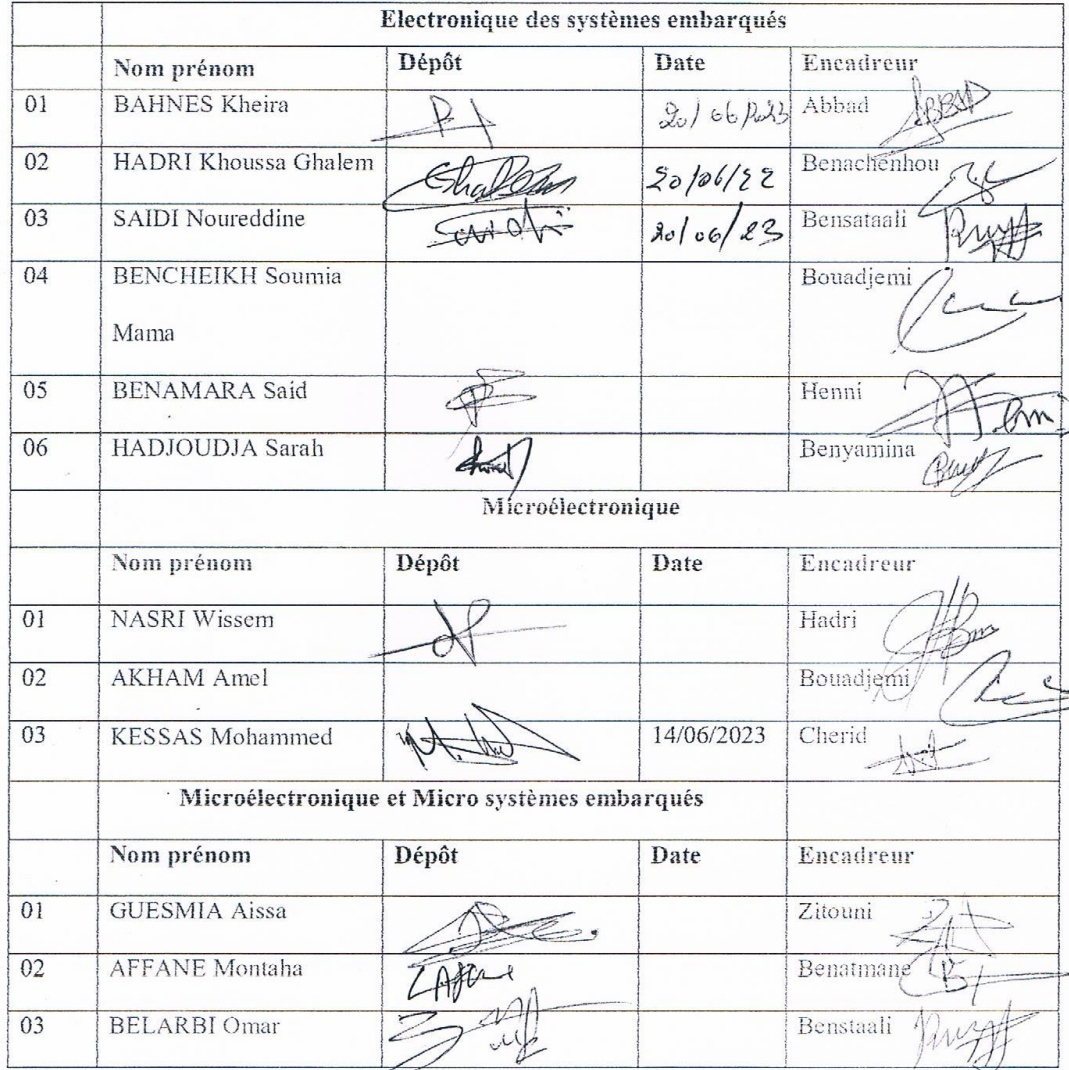 Electronique des systèmes embarqués
Nom prénom Dépôt Date Encadreur
01 BAHNES Kheira 20/06/2023 Abbad
02 HADRI Khoussa Ghalem Ghalem 20/06/22 Benachenhou
03 SAIDI Noureddine Saidi 20/06/23 Bensataali
04 BENCHEIKH Soumia Bouadjemi
Mama
05 BENAMARA Said Henni
06 HADJOUDJA Sarah Benyamina
Microélectronique
Nom prénom Dépôt Date Encadreur
01 NASRI Wissem Hadri
02 AKHAM Amel Bouadjemi
03 KESSAS Mohammed 14/06/2023 Cherid
Microélectronique et Micro systèmes embarqués
Nom prénom Dépôt Date Encadreur
01 GUESMIA Aissa Zitouni
02 AFFANE Montaha Benatmane
03 BELARBI Omar Benstaali